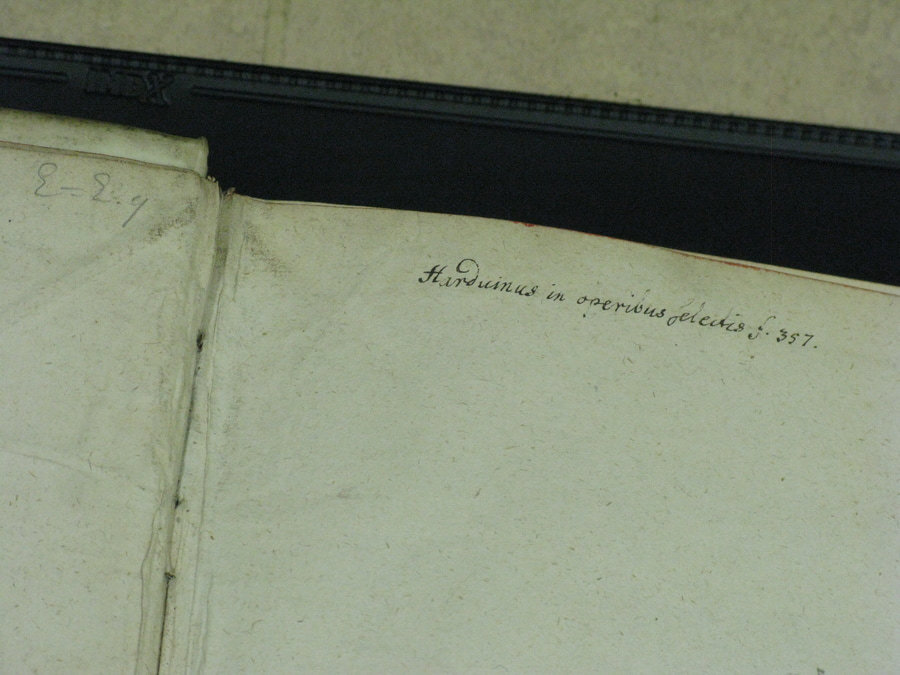 E – E. 9
Harduinus in operibus selectis f. 357.